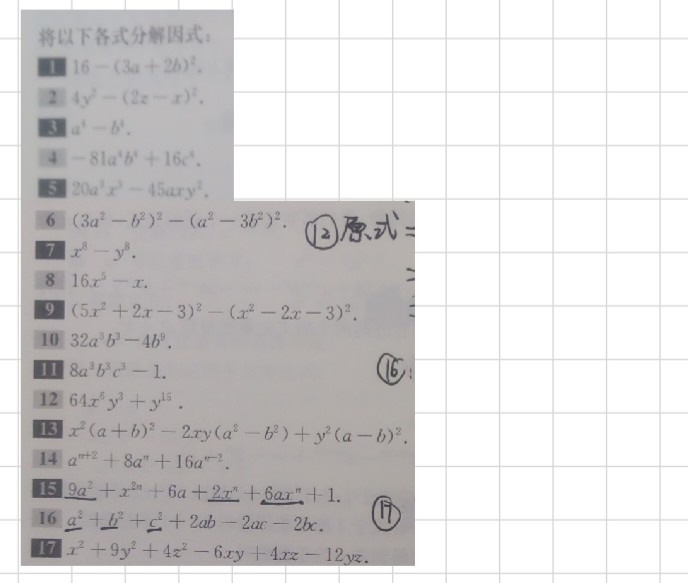 将以下各式分解因式：
1 16－(3a＋2b)².
2 4y²－(2z－x)².
3 a⁴－b⁴.
4 －81a⁴b⁴＋16c⁴.
5 20a³x³－45axy².
6 (3a²－b²)²－(a²－3b²)².
⑫原式＝
7 x⁸－y⁸.
8 16x⁵－x.
9 (5x²＋2x－3)²－(x²－2x－3)².
10 32a³b³－4b⁹.
11 8a³b³c³－1.
⑯:
12 64x⁶y³＋y¹⁵.
13 x²(a＋b)²－2xy(a²－b²)＋y²(a－b)².
14 aⁿ⁺²＋8aⁿ＋16aⁿ⁻².
15 9a²＋x²ⁿ＋6a＋2xⁿ＋6axⁿ＋1.
16 a²＋b²＋c²＋2ab－2ac－2bc.
⑰
17 x²＋9y²＋4z²－6xy＋4xz－12yz.